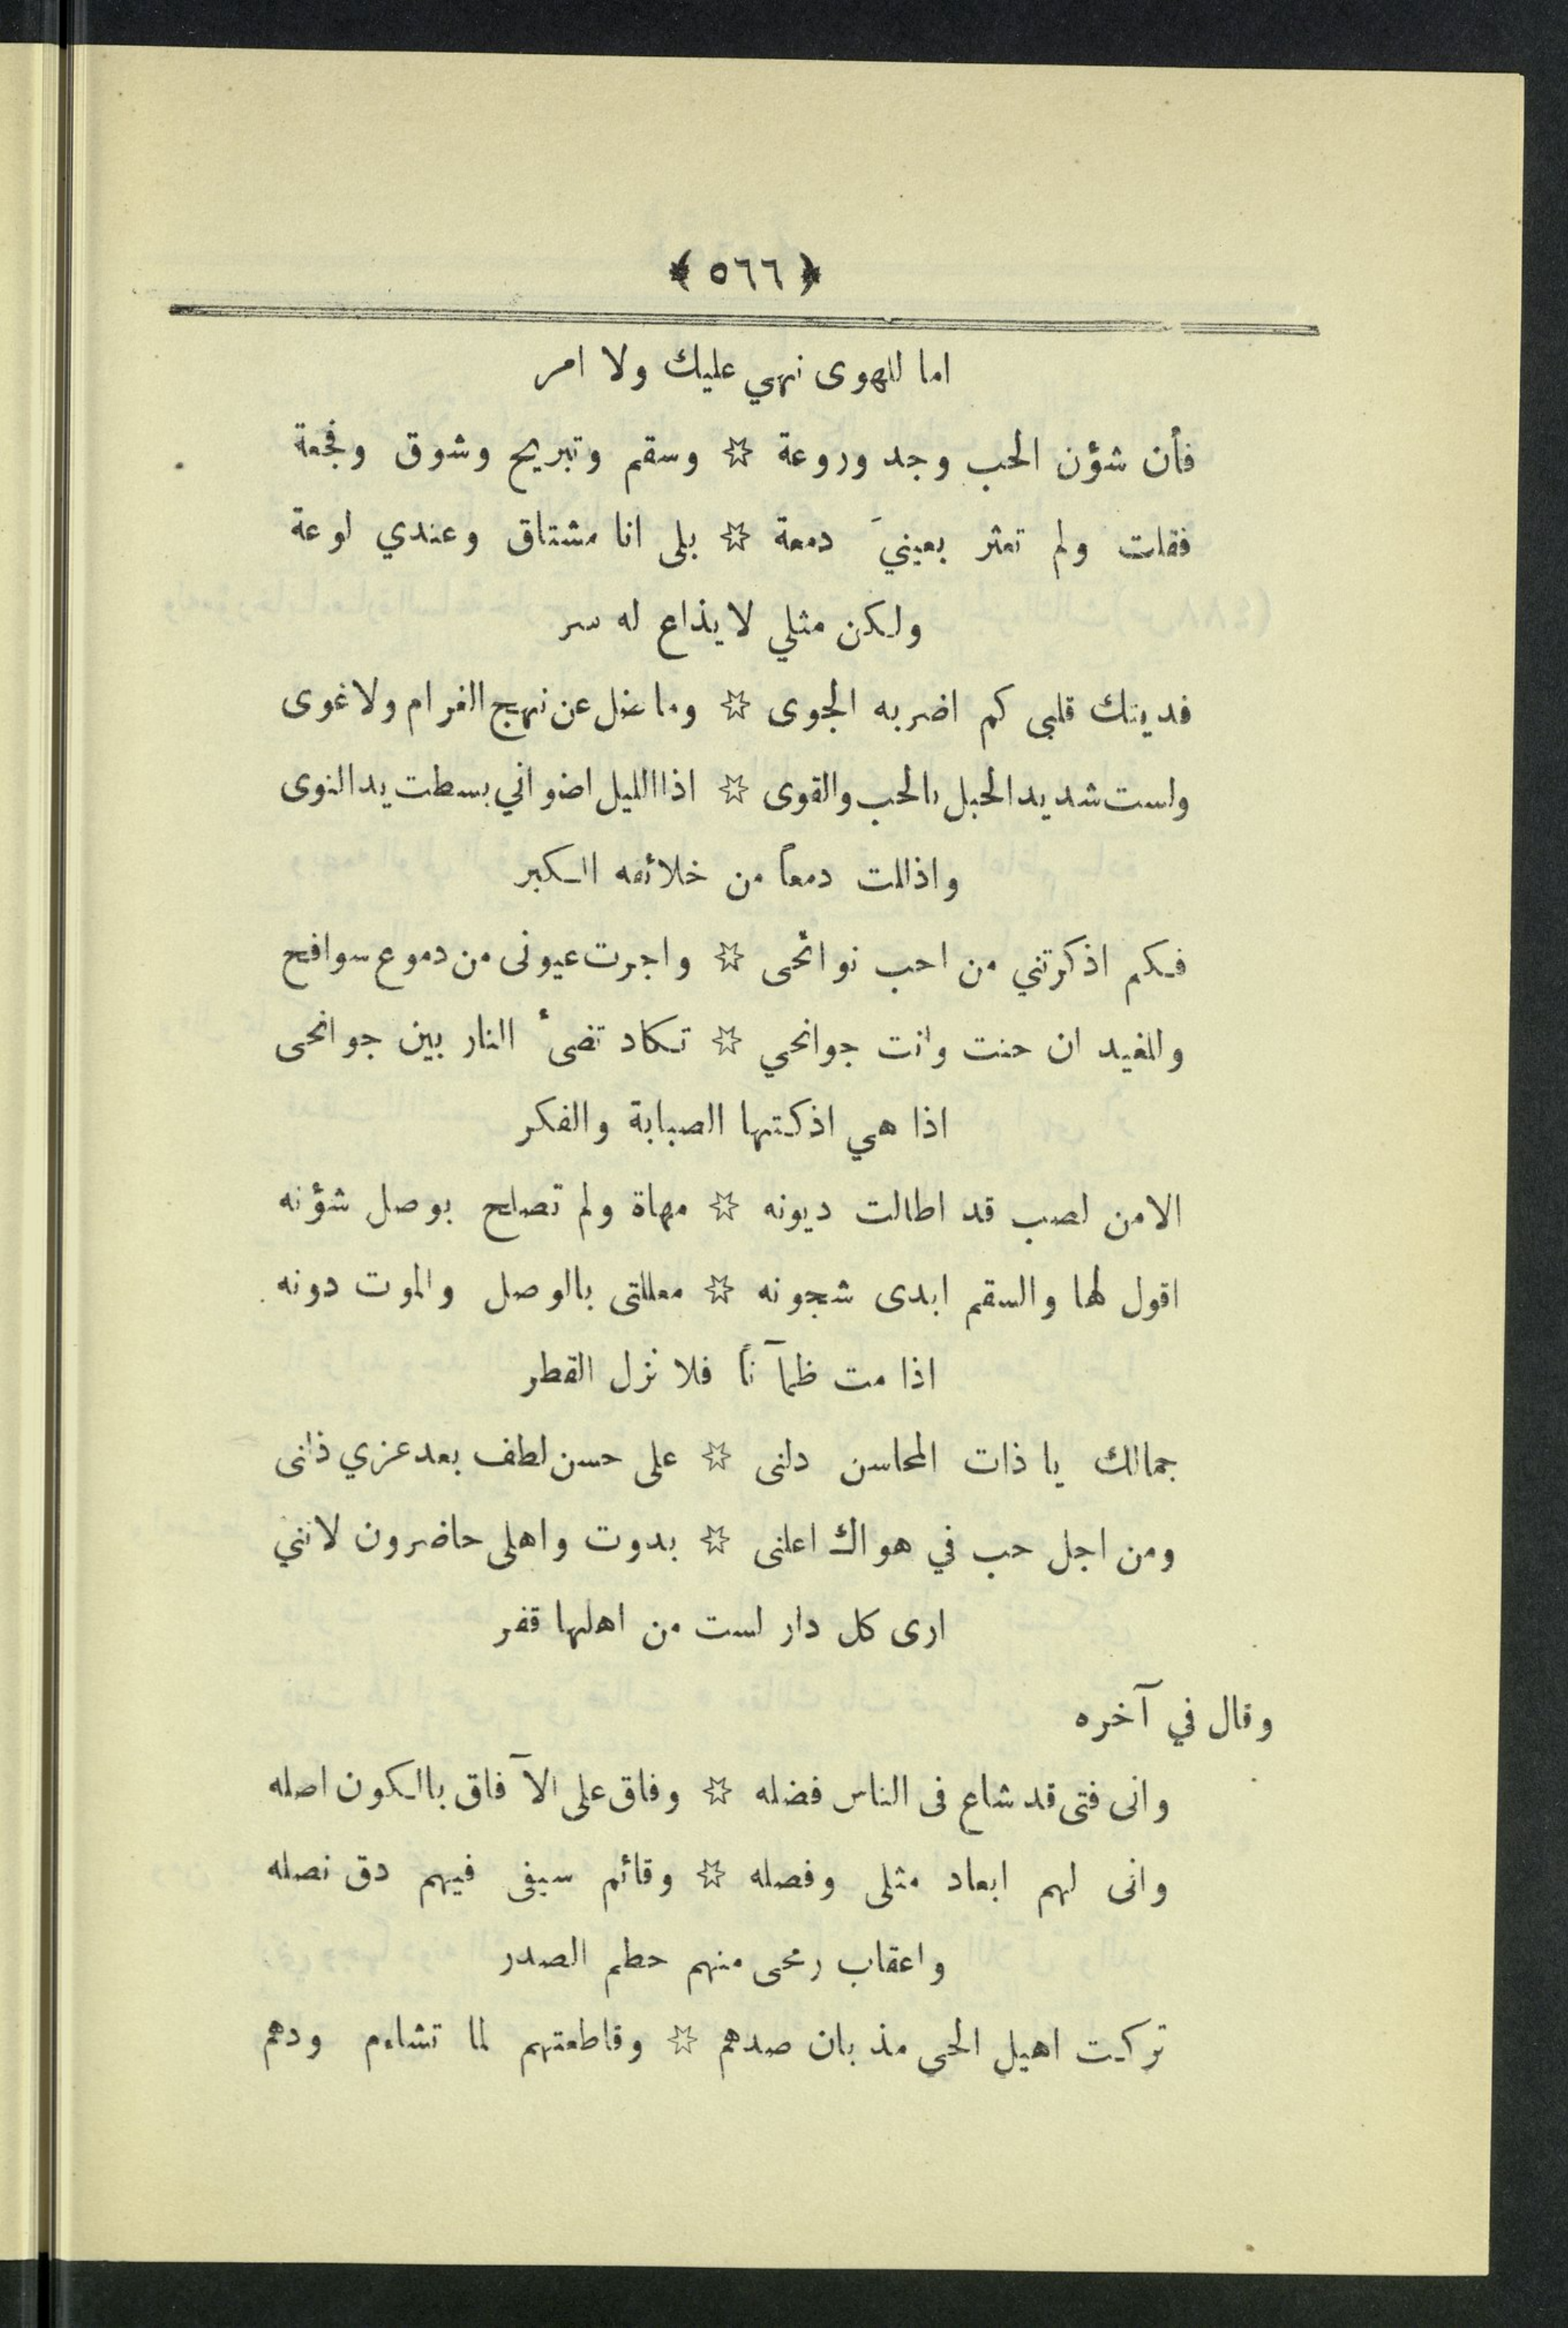 ﴿ ٥٦٦ ﴾
اما للهوى نهي عليك ولا امر
فأن شؤن الحب وجد وروعة ☆ وسقم وتبريح وشوق وفجعة
فقلت ولم تعثر بعينيَ دمعة ☆ بلى انا مشتاق وعندي لوعة
ولكن مثلي لا يذاع له سر
فديتك قلبى كم اضر به الجوى ☆ وما ضل عن نهج الغرام ولا غوى
ولست شديد الحبل بالحب والقوى ☆ اذا الليل اضواني بسطت يد النوى
واذللت دمعاً من خلائقه الكبر
فكم اذكرتني من احب نوائحى ☆ واجرت عيونى من دموع سوافح
وللغيد ان حنت وانت جوانحي ☆ تكاد تضىء النار بين جوانحى
اذا هي اذكتها الصبابة والفكر
الا من لصب قد اطالت ديونه ☆ مهاة ولم تصلح بوصل شؤنه
اقول لها والسقم ابدى شجونه ☆ معللتى بالوصل والموت دونه
اذا مت ظمآ ناً فلا نزل القطر
جمالك يا ذات المحاسن دلنى ☆ على حسن لطف بعد عزي ذلنى
ومن اجل حب في هواك اعلنى ☆ بدوت واهلى حاضرون لانني
ارى كل دار لست من اهلها قفر
وقال في آخره
وانى فتى قد شاع فى الناس فضله ☆ وفاق على الآفاق بالكون اصله
وانى لهم ابعاد مثلى وفصله ☆ وقائم سيفى فيهم دق نصله
واعقاب رمحى منهم حطم الصدر
تركت اهيل الحى مذ بان صدهم ☆ وقاطعتهم لما تشاءم ودهم